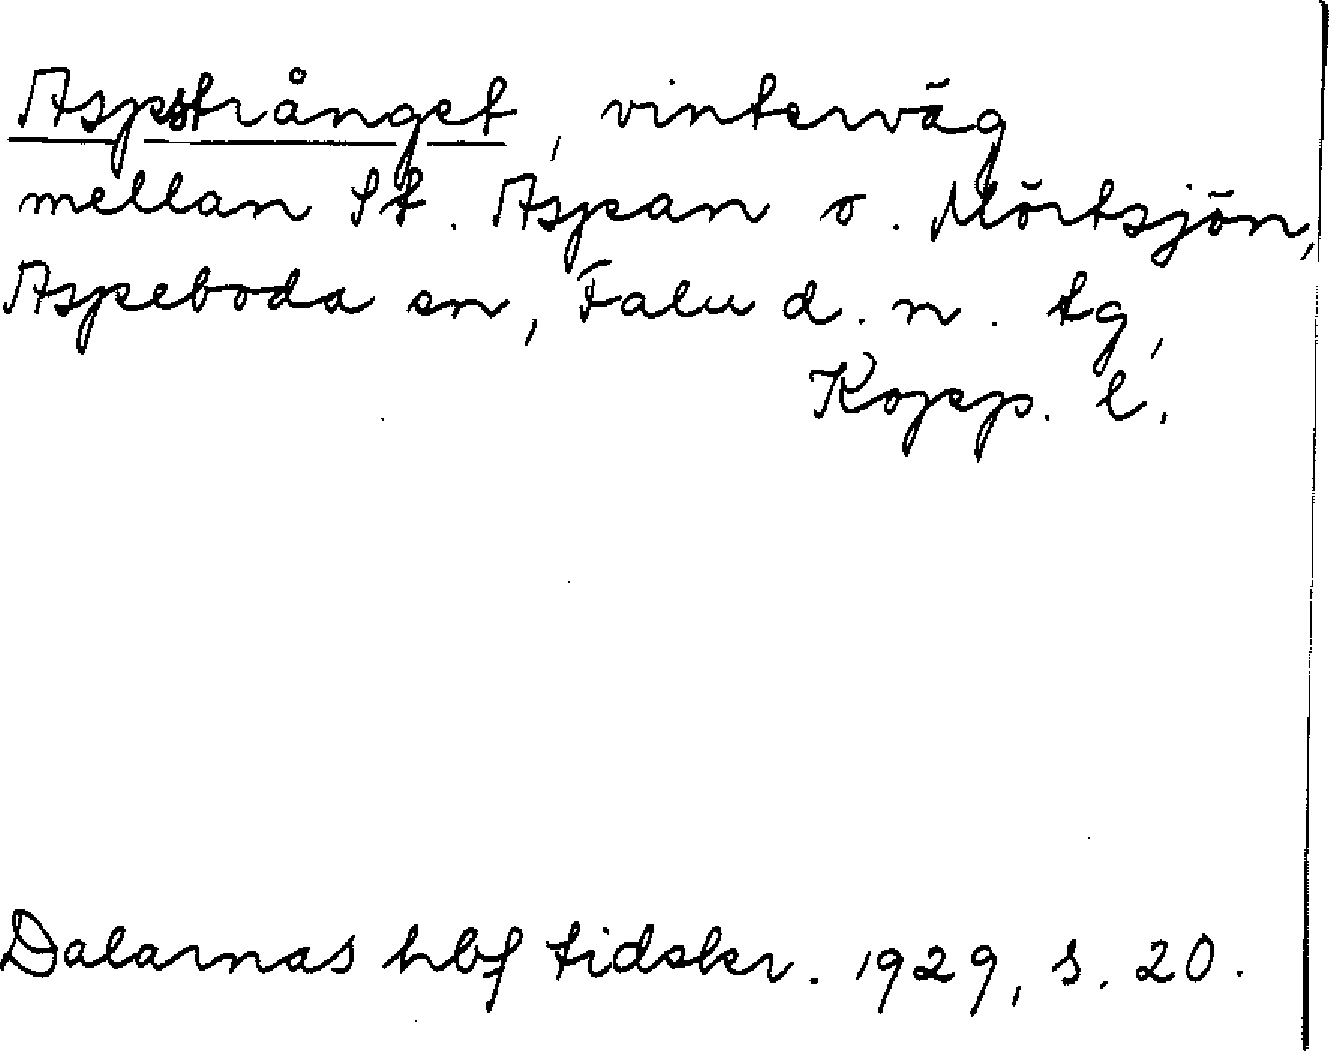 Aspstrånget, vinterväg
mellan St. Aspan o. Mörtsjön,
Aspeboda sn, Falu d. n. tg,
Kopp. l.
Dalarnas hbf tidskr. 1929, s. 20.